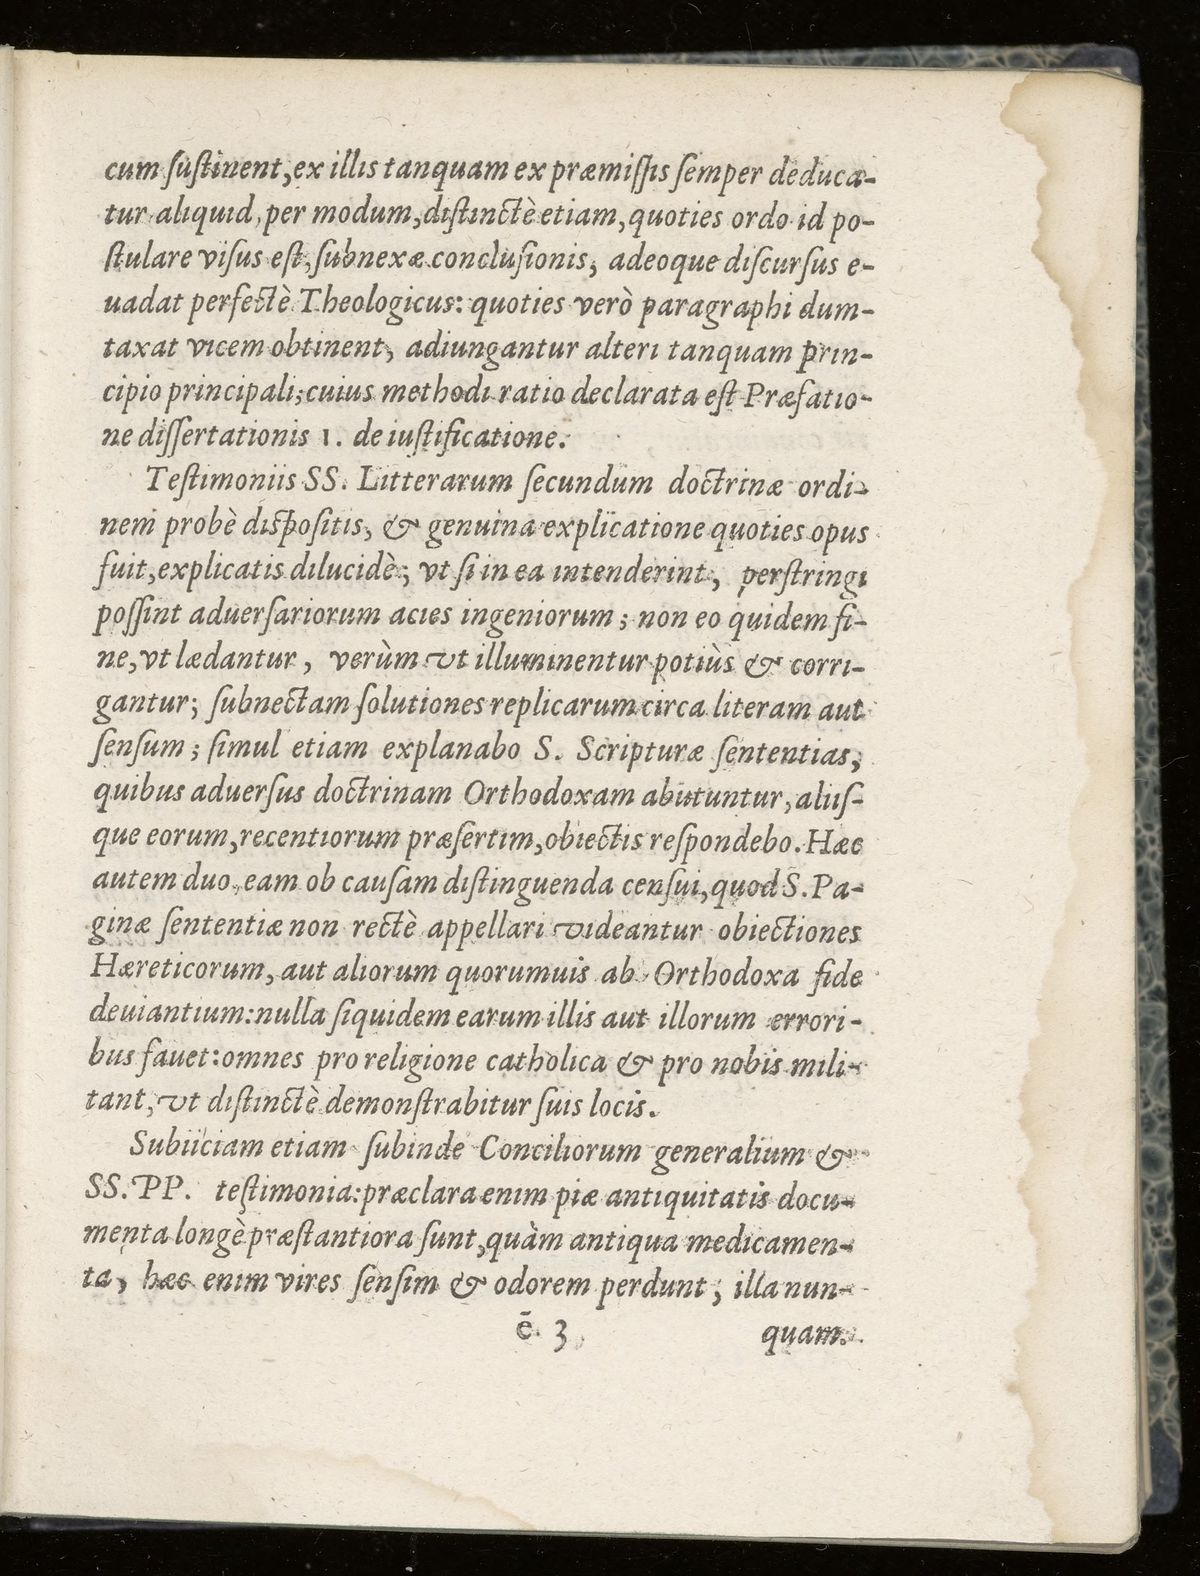 cum ſuſtinent, ex illis tanquam ex præmiſſis ſemper deduca-
tur aliquid per modum, diſtinctè etiam, quoties ordo id po-
ſtulare viſus eſt, ſubnexæ concluſionis, adeoque diſcurſus e-
uadat perfectè Theologicus: quoties verò paragraphi dum-
taxat vicem obtinent, adiungantur alteri tanquam prin-
cipio principali; cuius methodi ratio declarata eſt Præfatio-
ne diſſertationis 1. de iuſtificatione.
Teſtimoniis SS. Litterarum ſecundum doctrinæ ordi-
nem probè diſpoſitis, & genuina explicatione quoties opus
fuit, explicatis dilucidè; vt ſi in ea intenderint, perſtringi
poſſint aduerſariorum acies ingeniorum; non eo quidem fi-
ne, vt lædantur, verùm vt illuminentur potiùs & corri-
gantur; ſubnectam ſolutiones replicarum circa literam aut
ſenſum; ſimul etiam explanabo S. Scripturæ ſententias,
quibus aduerſus doctrinam Orthodoxam abutuntur, aliiſ-
que eorum, recentiorum præſertim, obiectis reſpondebo. Hæc
autem duo, eam ob cauſam diſtinguenda cenſui, quod S. Pa-
ginæ ſententiæ non rectè appellari videantur obiectiones
Hæreticorum, aut aliorum quorumuis ab Orthodoxa fide
deuiantium: nulla ſiquidem earum illis aut illorum errori-
bus fauet: omnes pro religione catholica & pro nobis mili-
tant, vt diſtinctè demonſtrabitur ſuis locis.
Subiiciam etiam ſubinde Conciliorum generalium &
SS. PP. teſtimonia: præclara enim piæ antiquitatis docu-
menta longè præſtantiora ſunt, quàm antiqua medicamen-
ta, hæc enim vires ſenſim & odorem perdunt; illa nun-
ē 3 quam.